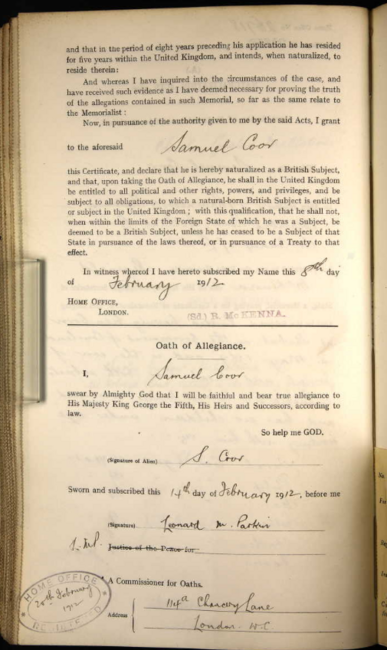 and that in the period of eight years preceding his application he has resided
for five years within the United Kingdom, and intends, when naturalized, to
reside therein:
And whereas I have inquired into the circumstances of the case, and
have received such evidence as I have deemed necessary for proving the truth
of the allegations contained in such Memorial, so far as the same relate to
the Memorialist:
Now, in pursuance of the authority given to me by the said Acts, I grant
to the aforesaid Samuel Coor
this Certificate, and declare that he is hereby naturalized as a British Subject,
and that, upon taking the Oath of Allegiance, he shall in the United Kingdom
be entitled to all political and other rights, powers, and privileges, and be
subject to all obligations, to which a natural-born British Subject is entitled
or subject in the United Kingdom; with this qualification, that he shall not,
when within the limits of the Foreign State of which he was a Subject, be
deemed to be a British Subject, unless he has ceased to be a Subject of that
State in pursuance of the laws thereof, or in pursuance of a Treaty to that
effect.
In witness whereof I have hereto subscribed my Name this 8th day
of February 1912
HOME OFFICE,
LONDON.
(Sd) R. McKENNA.
Oath of Allegiance.
I, Samuel Coor
swear by Almighty God that I will be faithful and bear true allegiance to
His Majesty King George the Fifth, His Heirs and Successors, according to
law.
So help me GOD,
(Signature of Alien) S. Coor
Sworn and subscribed this 14th day of February 1912, before me
(Signature) Leonard M. Parkin
Justice of the Peace for
A Commissioner for Oaths.
Address Chancery Lane
London. W.C
HOME OFFICE
February
1912
REGISTERED